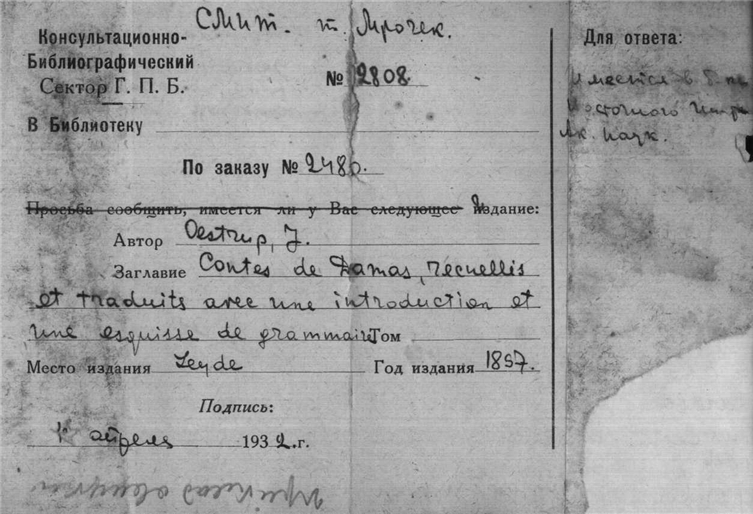 Смит. т. Мрочек.
Консультационно-
Библиографический
Сектор Г. П. Б.
№ 2808
В Библиотеку
По заказу № 2480.
Просьба сообщить, имеется ли у Вас следующее издание:
Автор Oestrup, J.
Заглавие Contes de Damas, recuellis
et traduits avec une introduction et
une esquisse de grammaire Том
Место издания Leyde Год издания 1897.
Подпись:
1 апреля 1932 г.
Для ответа:
Имеется в
Восточного
Ак. Наук.